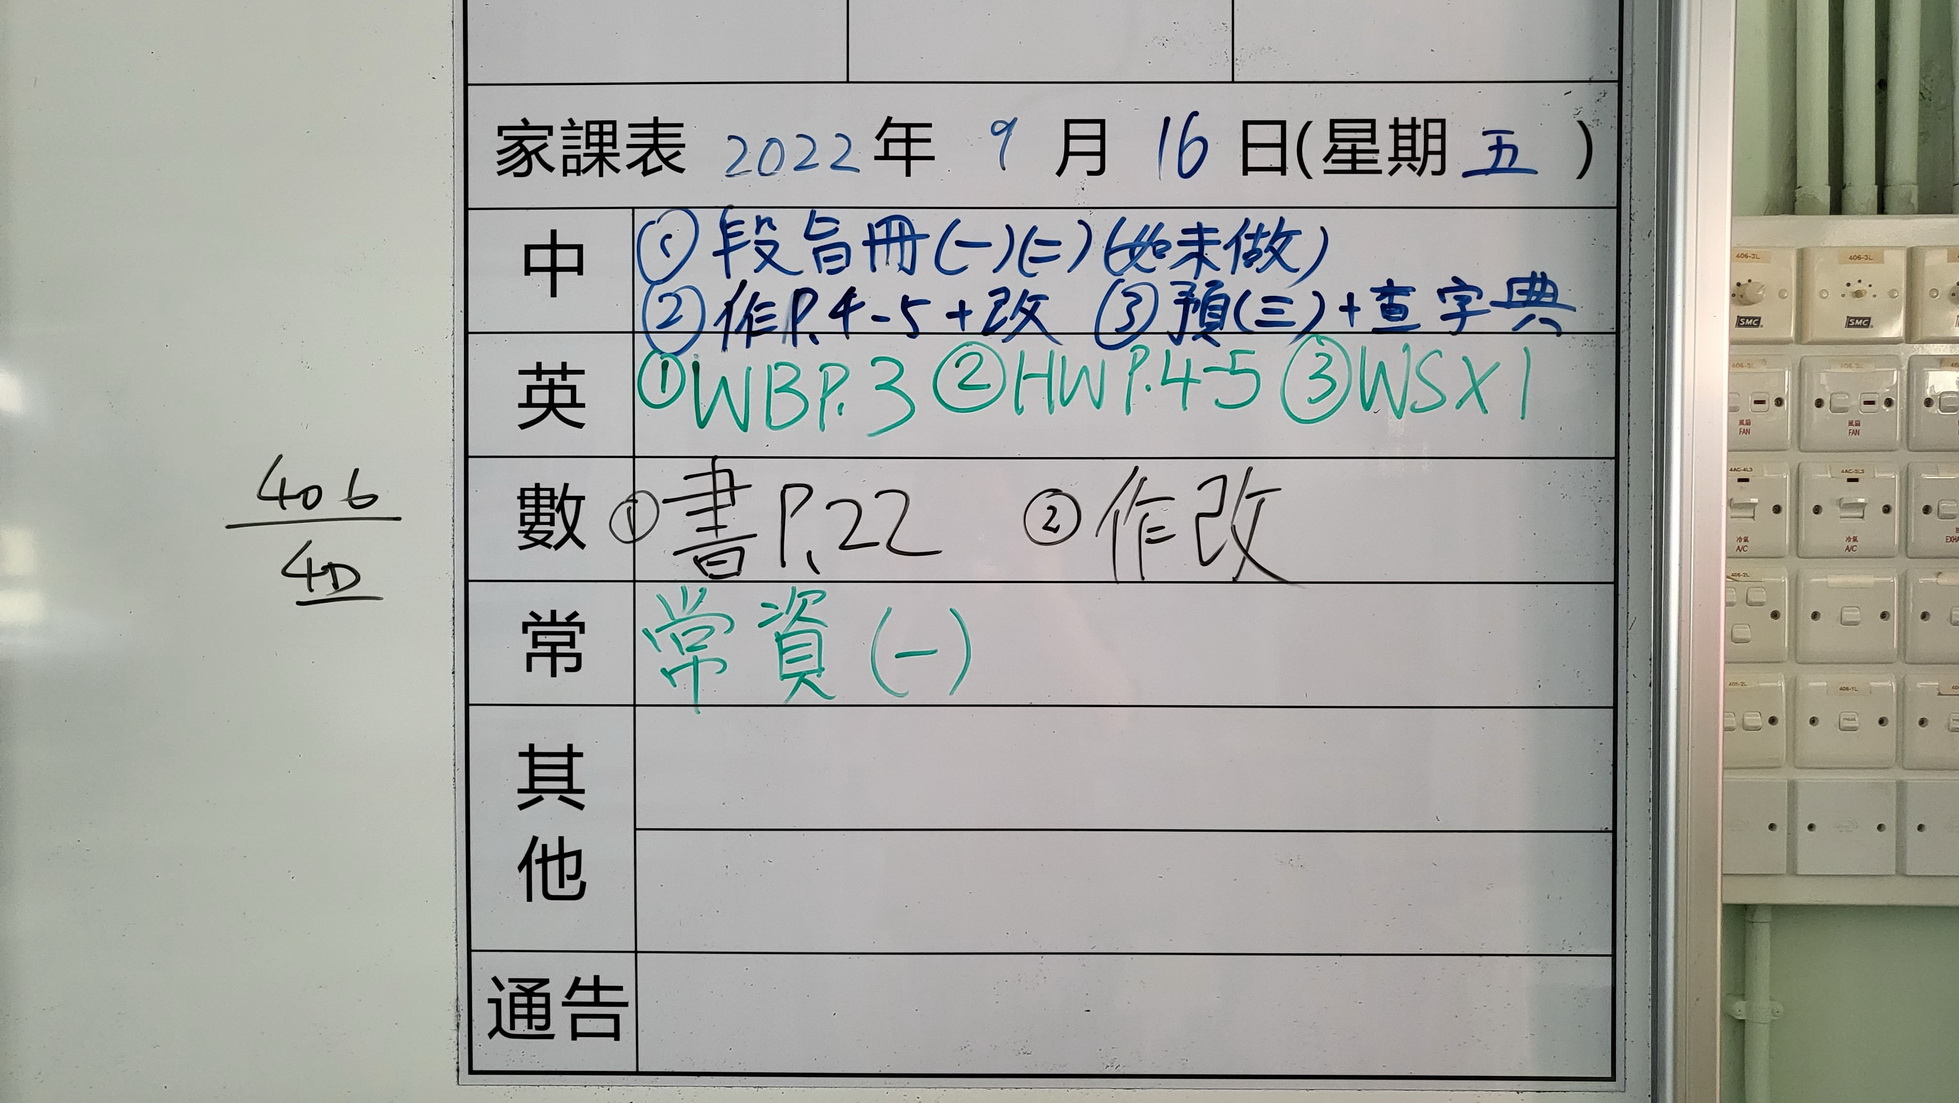 家課表 2022年 9月 16日(星期五)
中
①段旨冊(一)(二)(如未做)
②作P.4-5+改 ③預(三)+查字典
英
①WBP.3 ②HWP.4-5 ③WSX1
數
①書P.22 ②作改
常
常資(一)
其他
通告
406
4D
406-3L
406-3L
SMC
SMC
風扇
FAN
風扇
FAN
冷氣
A/C
冷氣
A/C